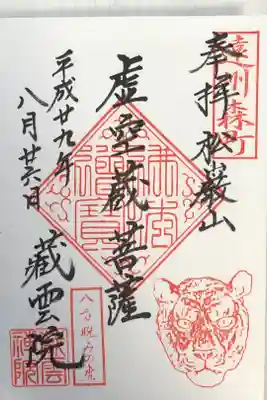 遠州森町
奉拝 松巌山
虚空蔵菩薩
蔵雲院
平成廿九年
八月廿六日
八方睨みの虎